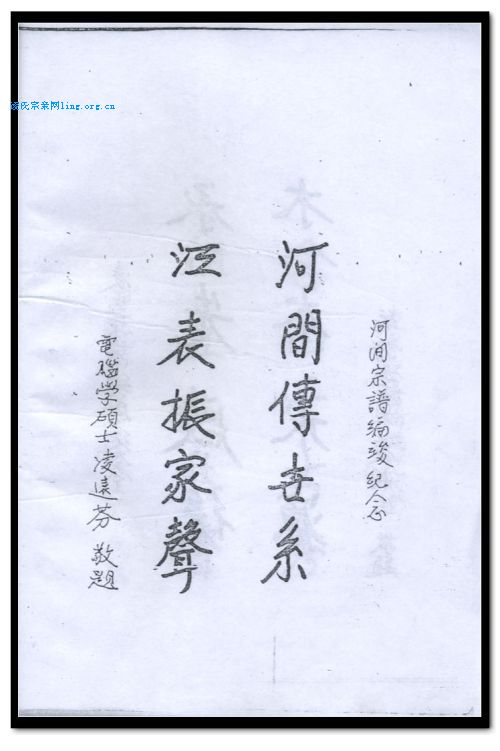 凌氏宗亲网ling.org.cn
河间宗譜编竣紀念
河間傳世系
江表振家聲
電腦學碩士凌遠芬 敬題